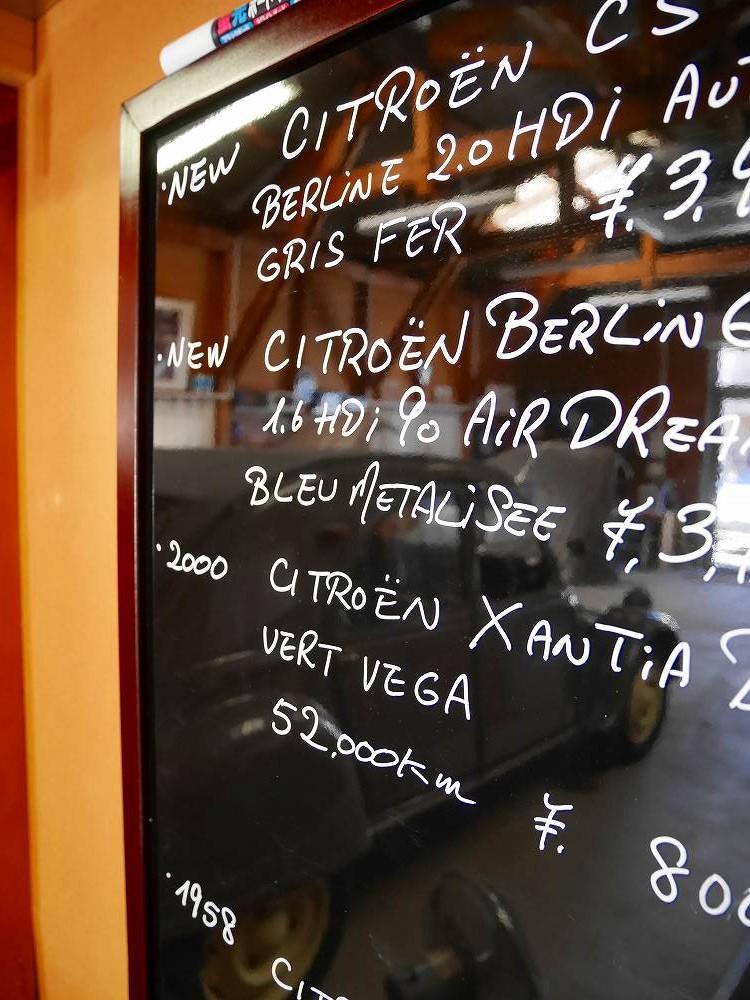 ·NEW CITROËN C5
BERLINE 2.0 HDi AUT
GRIS FER ¥. 3,9
·NEW CITROËN BERLiNG
1.6 HDi 90 AiRDREA
BLEU METALiSEE ¥, 3,
·2000 CITROËN XANTiA
VERT VEGA
52,000km
¥. 800
·1958 CIT